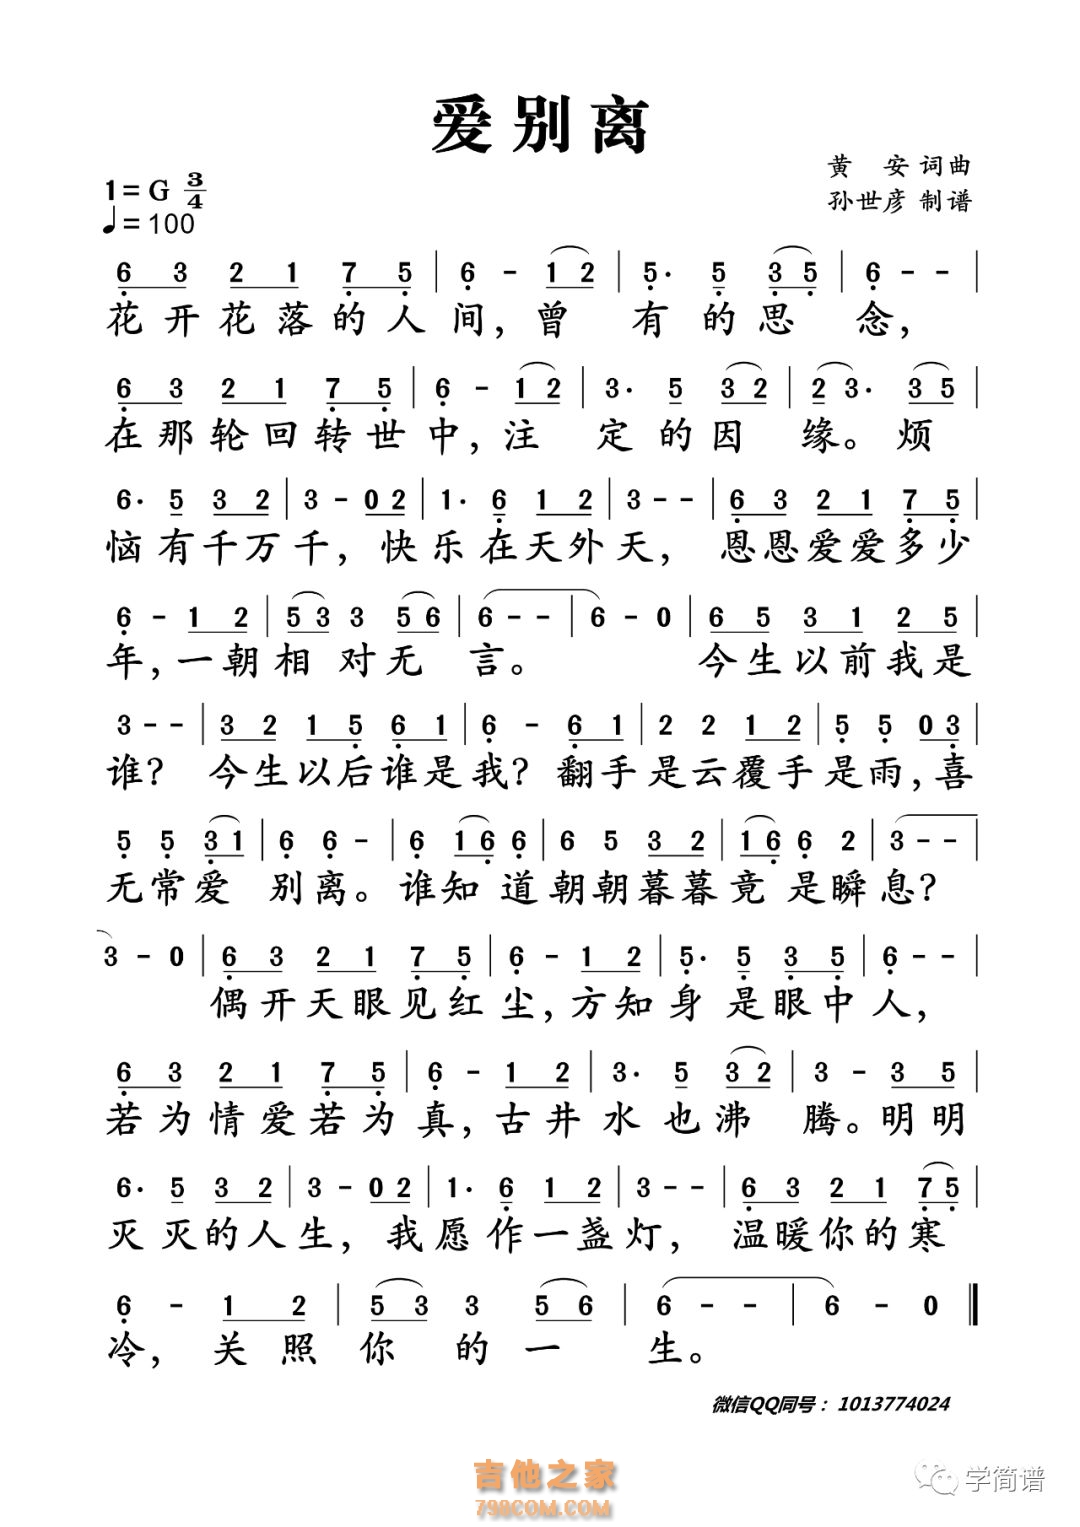 爱别离
黄 安 词曲
1=G 3/4
孙世彦 制谱
♩=100
6 3 2 1 7 5 | 6 - 1 2 | 5. 5 3 5 | 6 - - |
花开花落的人间,曾有的思念,
6 3 2 1 7 5 | 6 - 1 2 | 3. 5 3 2 | 2 3. 3 5 |
在那轮回转世中,注定的因缘。烦
6. 5 3 2 | 3 - 0 2 | 1. 6 1 2 | 3 - - | 6 3 2 1 7 5 |
恼有千万千,快乐在天外天,恩恩爱爱多少
6 - 1 2 | 5 3 3 5 6 | 6 - - | 6 - 0 | 6 5 3 1 2 5 |
年,一朝相对无言。 今生以前我是
3 - - | 3 2 1 5 6 1 | 6 - 6 1 | 2 2 1 2 | 5 5 0 3 |
谁?今生以后谁是我?翻手是云覆手是雨,喜
5 5 3 1 | 6 6 - | 6 1 6 6 | 6 5 3 2 | 1 6 6 2 | 3 - - |
无常爱别离。谁知道朝朝暮暮竟是瞬息?
3 - 0 | 6 3 2 1 7 5 | 6 - 1 2 | 5. 5 3 5 | 6 - - |
偶开天眼见红尘,方知身是眼中人,
6 3 2 1 7 5 | 6 - 1 2 | 3. 5 3 2 | 3 - 3 5 |
若为情爱若为真,古井水也沸腾。明明
6. 5 3 2 | 3 - 0 2 | 1. 6 1 2 | 3 - - | 6 3 2 1 7 5 |
灭灭的人生,我愿作一盏灯,温暖你的寒
6 - 1 2 | 5 3 3 5 6 | 6 - - | 6 - 0 ‖
冷,关照你的一生。
微信QQ同号：1013774024
吉他之家
798COM.COM
学简谱